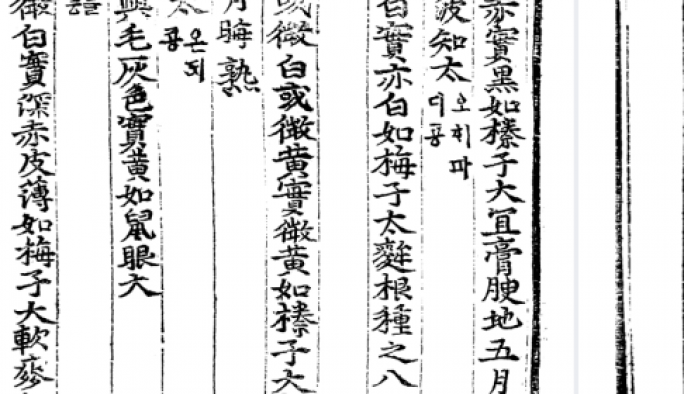 赤實黑如榛子大宜膏腴地五月
波知太 오ᄒᆡ파
디콩
白實亦白如梅子太麰根種之八
或微白或微黃實微黃如榛子大
月晦熟
太 온되
콩
毛灰色實黃如鼠眼大
微白實深赤皮薄如梅子大軟